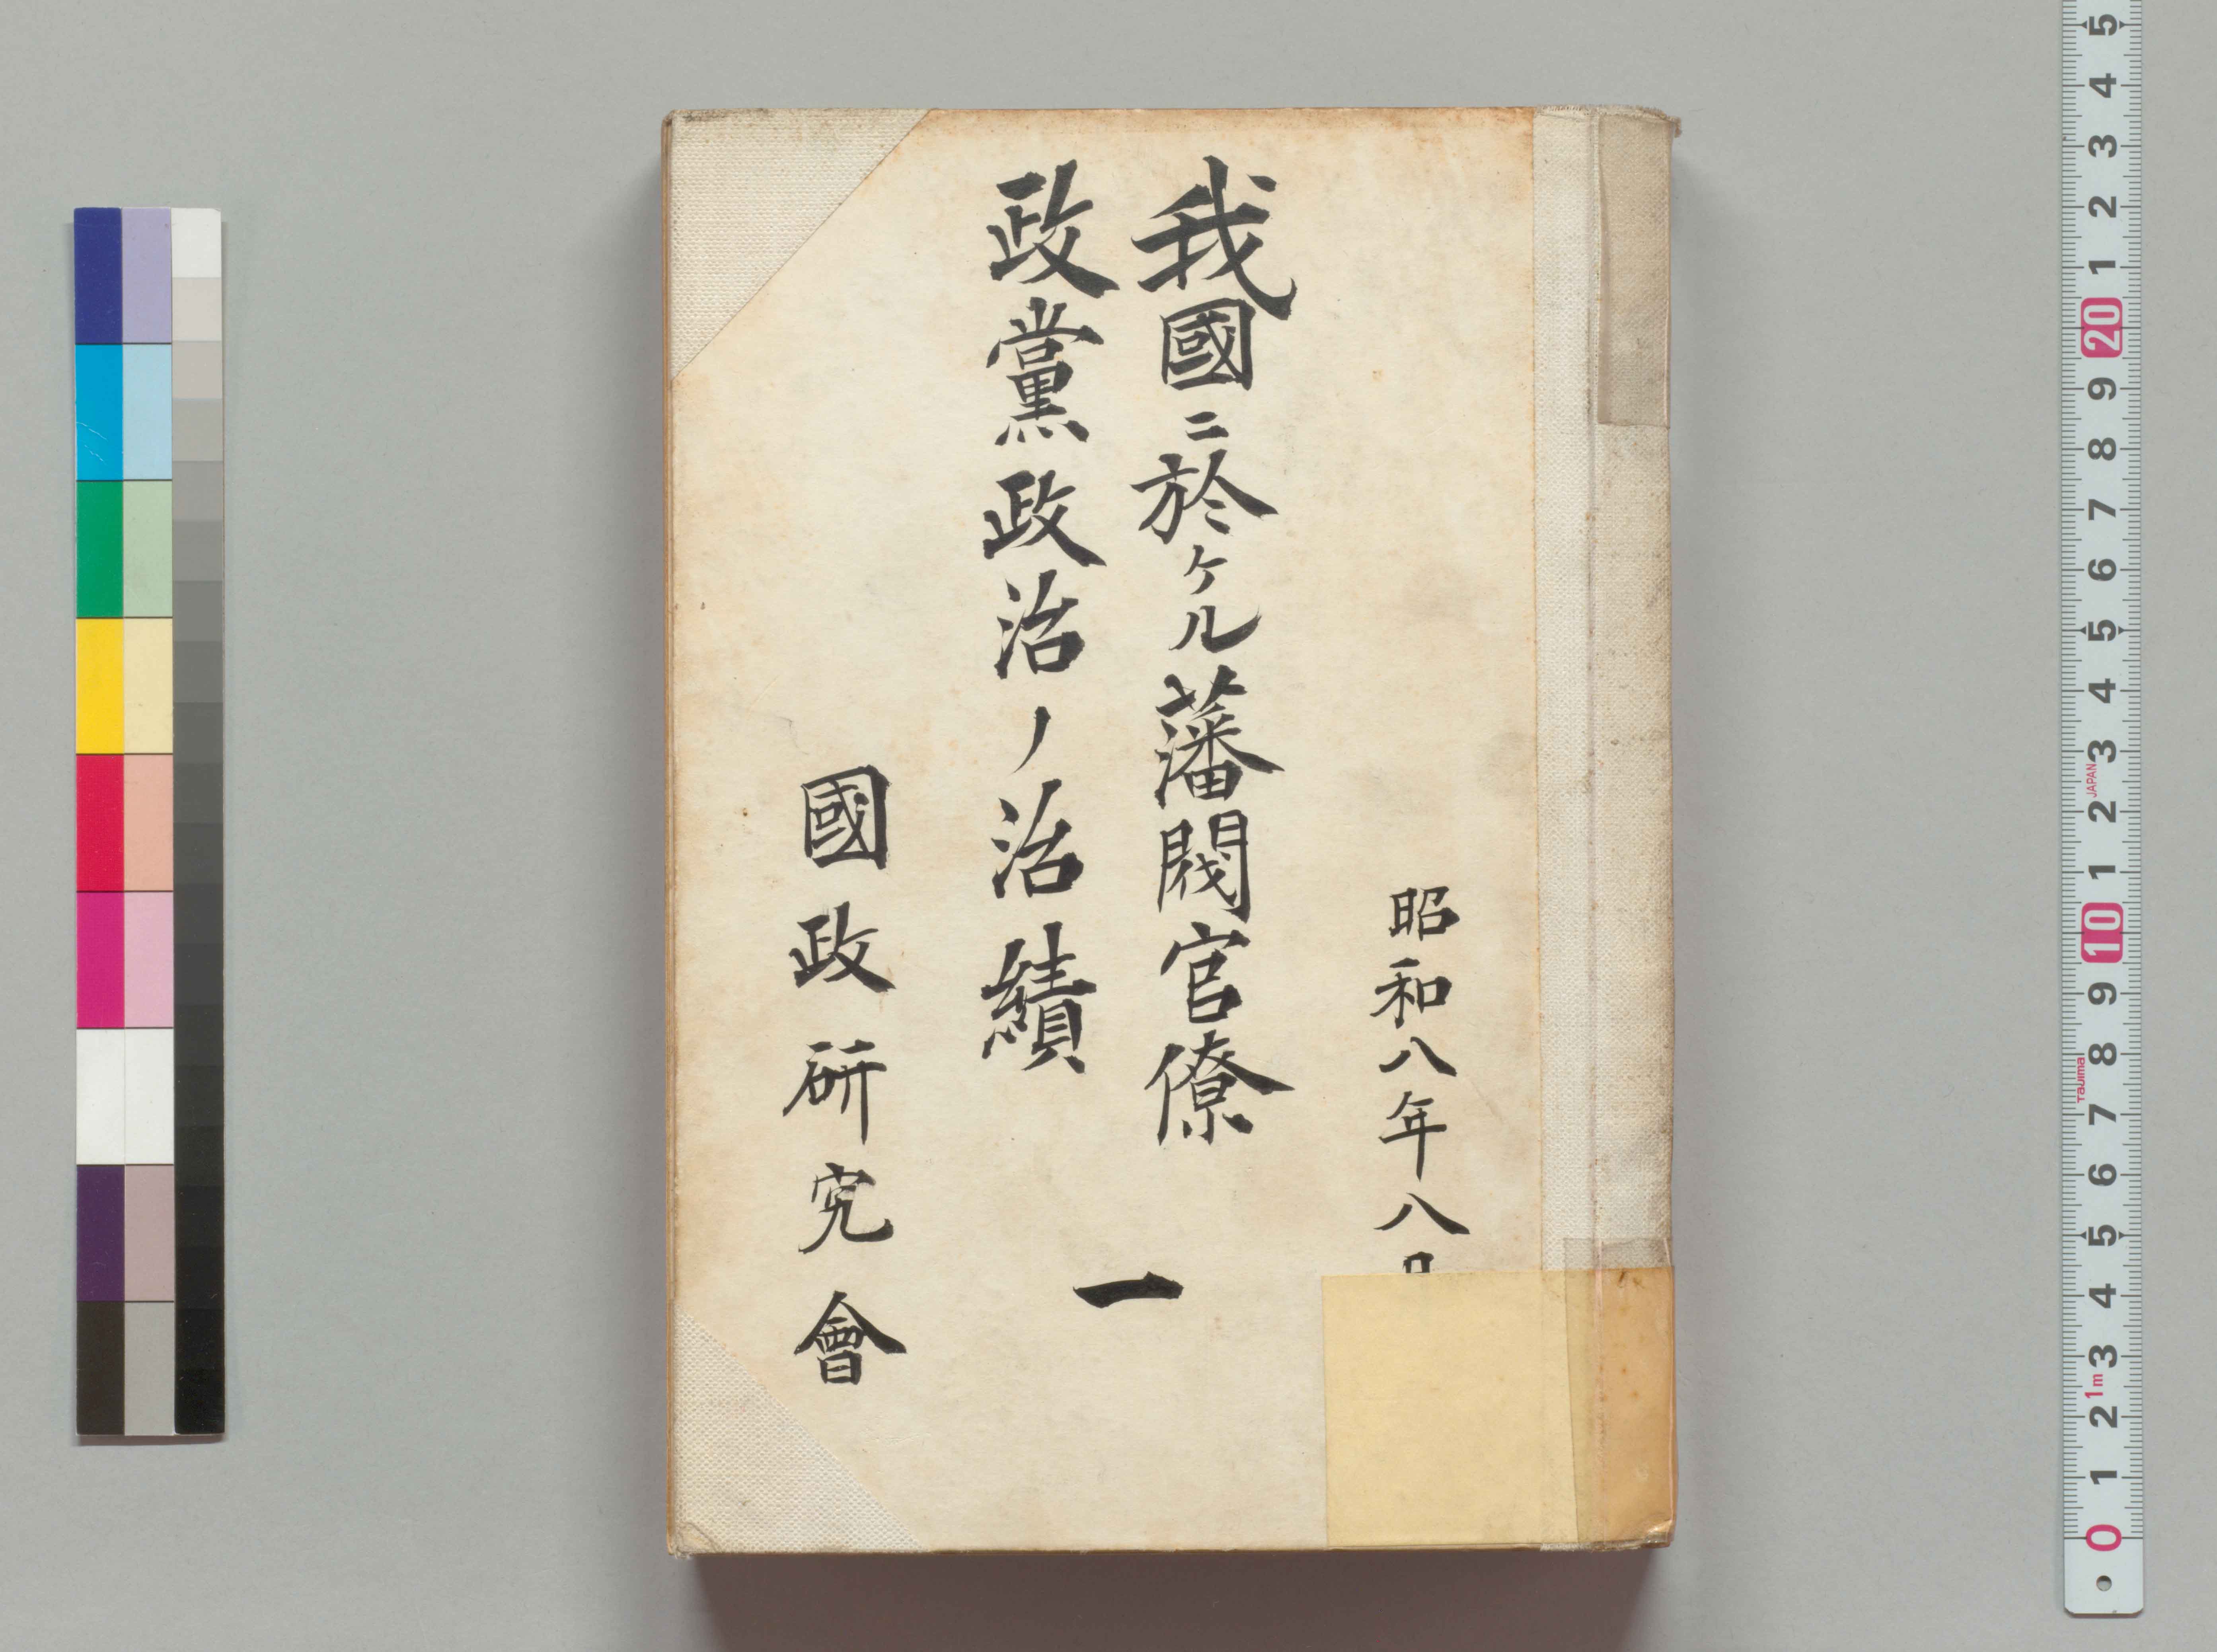 昭和八年八月
我國ニ於ケル藩閥官僚
政黨政治ノ治績
一
國政研究會
5
4
3
2
1
20
9
8
7
6
5
4
3
JAPAN
2
1
10
9
8
Tajima
7
6
5
4
3
1m
2
1
0